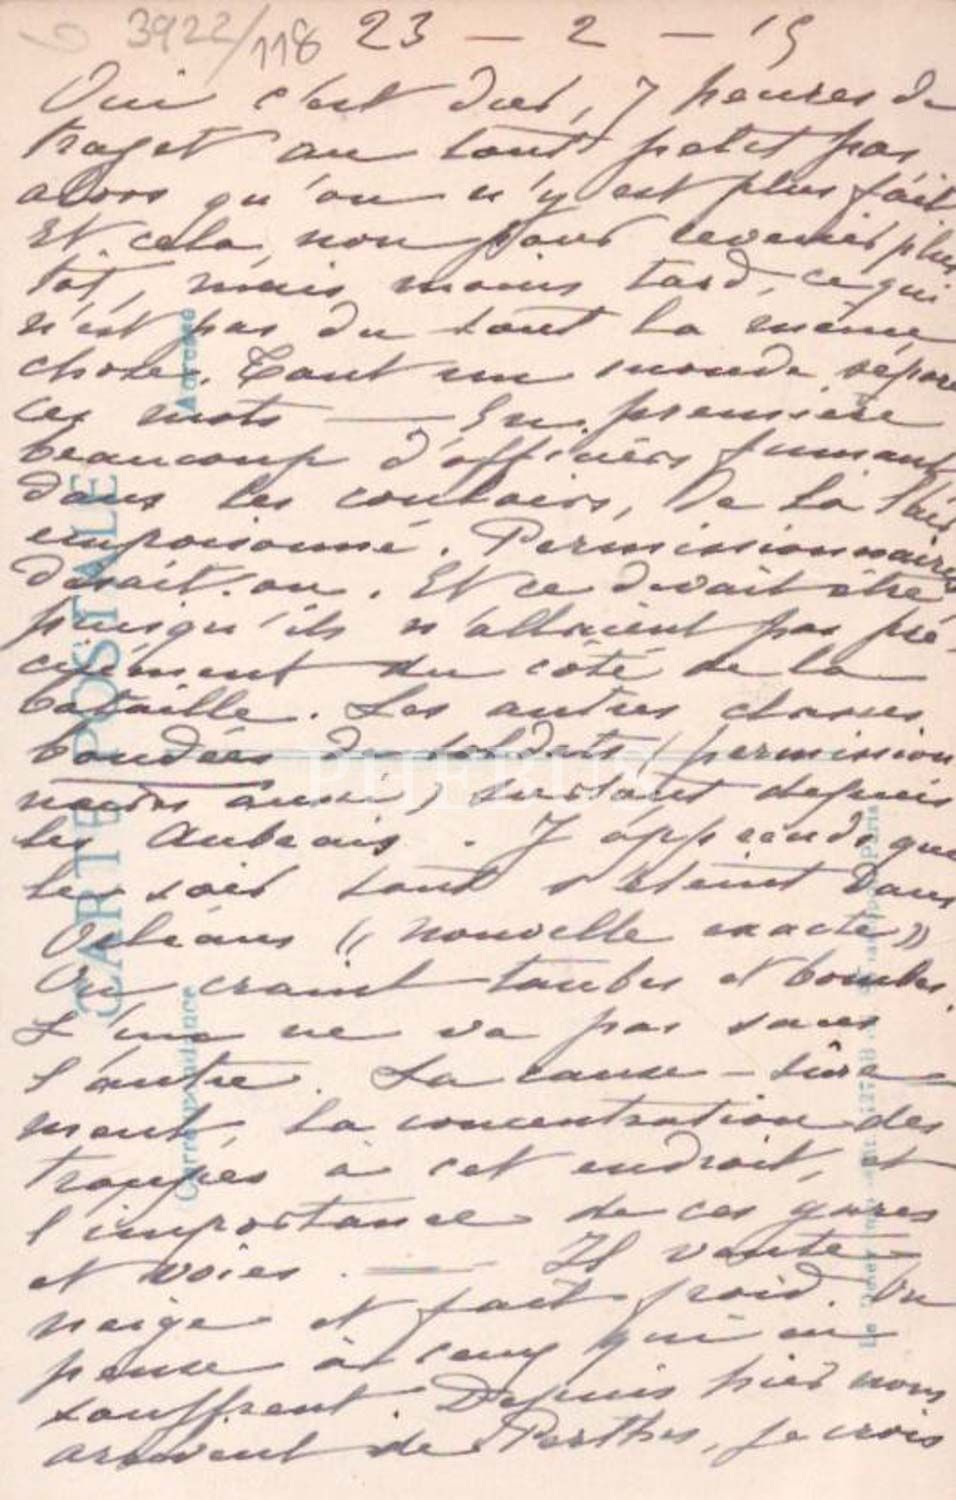 3922/118 23 - 2 - 15
Oui c'est dur, 7 heures de
traget au tout petit pas
alors qu'on n'y est plus fait
Et cela, non pour revenir plus
tôt, mais moins tard, ce qui
n'est pas du tout la même
chose. Tout un monde sépare
ces mots — En première
beaucoup d'officiers fumant
dans les couloirs, De la
empoisonné. Permissionnaires
disait-on. Et ce devait être
puisqu'ils n'allaient pas pré-
cisément du côté de la
bataille. Les autres classes
bondées de soldats (permission
naires aussi) surtout depuis
les Aubrais. J'apprends que
le soir tout s'éteint dans
Orléans (« nouvelle exacte »)
On craint taubes et bombes.
L'un ne va pas sans
l'autre. La cause - sûre-
ment, la concentration des
troupes à cet endroit, et
l'importance de ces gares
et voies. — Il vente
neige et fait froid. On
pense à ceux qui en
souffrent. Depuis hier nous
arrivent de Perthes, je crois
CARTE POSTALE
Correspondance
Adresse
PHEBUS